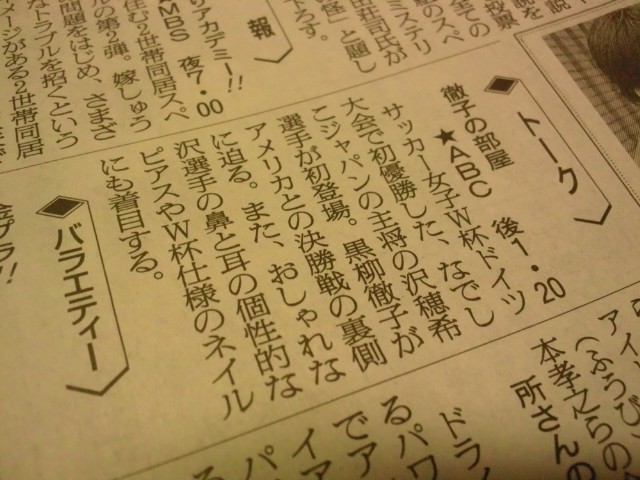 説を
投票
全ての
組のスペ
ミステリ
田荘司氏が
怪」と題し
下ろす。
報
りアカデミー!!
MBS 夜7・00
住む2世帯同居スペ
ルの第2弾。嫁しゅう
問題をはじめ、さまざ
なトラブルを招くという
メージがある2世帯同居
トーク
徹子の部屋
★ABC 後1・20
サッカー女子W杯ドイツ
大会で初優勝した、なでし
こジャパンの主将の沢穂希
選手が初登場。黒柳徹子が
アメリカとの決勝戦の裏側
に迫る。また、おしゃれな
沢選手の鼻と耳の個性的な
ピアスやW杯仕様のネイル
にも着目する。
バラエティー
アイ
(ふうび
本孝之らの
所さんの
ドラ
るパワ
でア
イア
パ